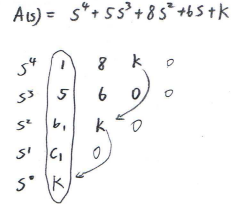 A(s) = s⁴+5s³+8s²+6s+k
s⁴ 1 8 k 0
s³ 5 6 0 0
s² b₁ k 0
s¹ c₁ 0
s⁰ k